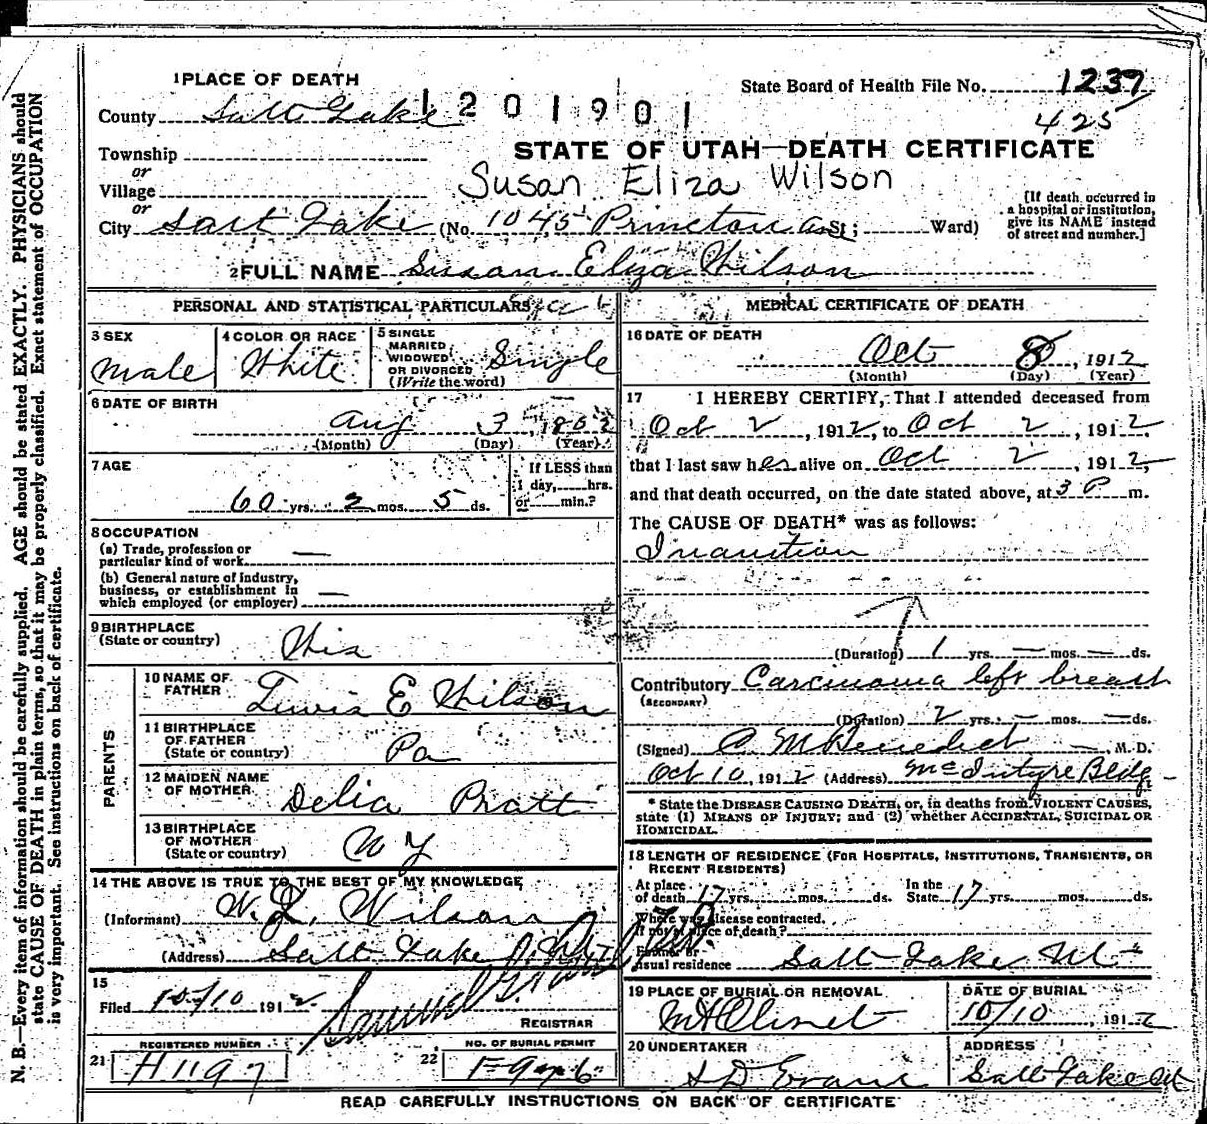 1 PLACE OF DEATH
State Board of Health File No. 1237
County Salt Lake 1201901
425
Township
STATE OF UTAH—DEATH CERTIFICATE
or
Village
Susan Eliza Wilson
or
City Salt Lake (No. 1045 Princeton av St; Ward)
[If death occurred in
a hospital or institution,
give its NAME instead
of street and number.]
2 FULL NAME Susan Eliza Wilson
PERSONAL AND STATISTICAL PARTICULARS
3 SEX
male
4 COLOR OR RACE
White
5 SINGLE
MARRIED
WIDOWED
OR DIVORCED
(Write the word)
Single
6 DATE OF BIRTH
Aug 3, 1852
(Month) (Day) (Year)
7 AGE
60 yrs. 2 mos. 5 ds.
If LESS than
1 day, hrs.
or min.?
8 OCCUPATION
(a) Trade, profession or
particular kind of work —
(b) General nature of industry,
business, or establishment in
which employed (or employer) —
9 BIRTHPLACE
(State or country) Wis
PARENTS
10 NAME OF
FATHER
Lewis E Wilson
11 BIRTHPLACE
OF FATHER
(State or country) Pa
12 MAIDEN NAME
OF MOTHER
Delia Pratt
13 BIRTHPLACE
OF MOTHER
(State or country) N Y
14 THE ABOVE IS TRUE TO THE BEST OF MY KNOWLEDGE
(Informant) W. L. Wilson
(Address) Salt Lake
15
Filed 10/10 1912
REGISTRAR
REGISTERED NUMBER
21 H1197
NO. OF BURIAL PERMIT
22
MEDICAL CERTIFICATE OF DEATH
16 DATE OF DEATH
Oct 8, 1912
(Month) (Day) (Year)
17 I HEREBY CERTIFY, That I attended deceased from
Oct 2, 1912, to Oct 2, 1912
that I last saw her alive on Oct 2, 1912,
and that death occurred, on the date stated above, at 3 P m.
The CAUSE OF DEATH* was as follows:
Inanition
(Duration) 1 yrs. — mos. — ds.
Contributory Carcinoma left breast
(SECONDARY)
(Duration) 2 yrs. — mos. — ds.
(Signed) A M Benedict, M. D.
Oct 10, 1912 (Address) McIntyre Bldg
* State the DISEASE CAUSING DEATH, or, in deaths from VIOLENT CAUSES,
state (1) MEANS OF INJURY; and (2) whether ACCIDENTAL, SUICIDAL OR
HOMICIDAL.
18 LENGTH OF RESIDENCE (FOR HOSPITALS, INSTITUTIONS, TRANSIENTS, OR
RECENT RESIDENTS)
At place
of death 17 yrs. mos. ds.
In the
State 17 yrs. mos. ds.
Where was disease contracted.
If not at place of death?
Former or
usual residence Salt Lake Ut
19 PLACE OF BURIAL OR REMOVAL
Mt Olivet
DATE OF BURIAL
10/10, 1912
20 UNDERTAKER
S D Evans
ADDRESS
Salt Lake Ut
READ CAREFULLY INSTRUCTIONS ON BACK OF CERTIFICATE
N. B.—Every item of information should be carefully supplied. AGE should be stated EXACTLY. PHYSICIANS should
state CAUSE OF DEATH in plain terms, so that it may be properly classified. Exact statement of OCCUPATION
is very important. See instructions on back of certificate.